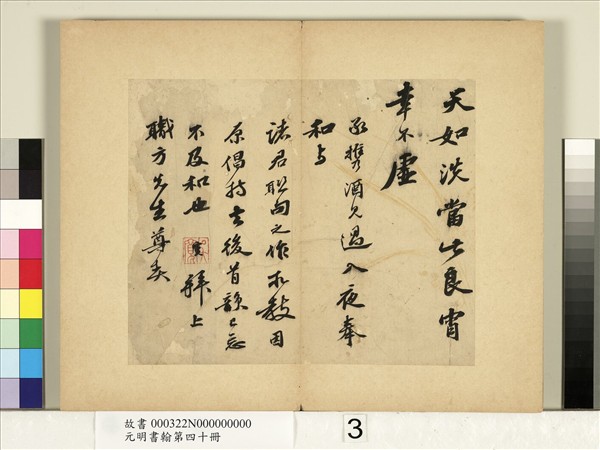 天如洗當此良宵
幸不虛
承携酒見過入夜奉
和与
諸君聯句之作求教因
原倡持去後首韻已忘
不及和也 寬 拜上
職方先生尊契
故書 000322N000000000
元明書翰第四十冊
3